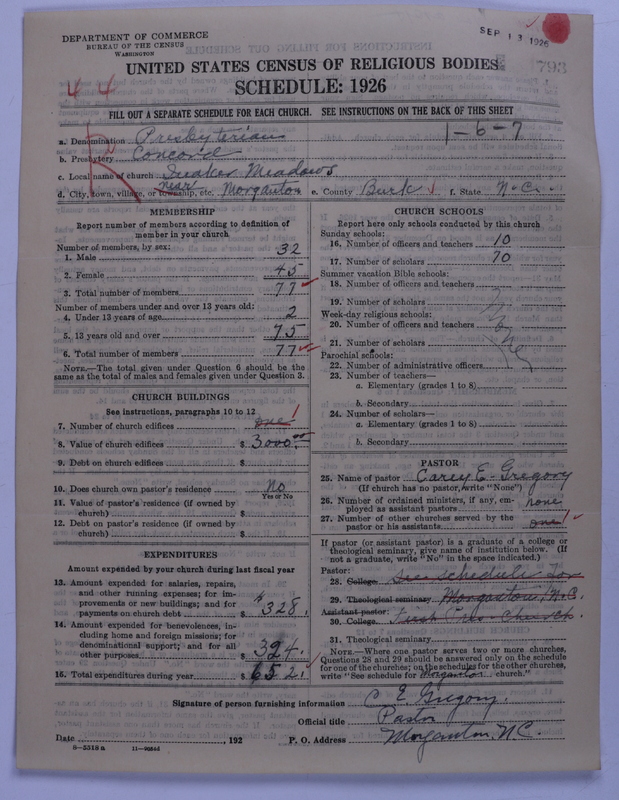 DEPARTMENT OF COMMERCE
BUREAU OF THE CENSUS
WASHINGTON
SEP 13 1926
793
UNITED STATES CENSUS OF RELIGIOUS BODIES
44
SCHEDULE: 1926
FILL OUT A SEPARATE SCHEDULE FOR EACH CHURCH. SEE INSTRUCTIONS ON THE BACK OF THIS SHEET
1-6-7
a. Denomination Presbyterian
b. Presbytery Concord
c. Local name of church Quaker Meadows
d. City, town, village, or township, etc. near Morganton e. County Burk f. State N.C.
MEMBERSHIP
Report number of members according to definition of
member in your church
Number of members, by sex:
1. Male 32
2. Female 45
3. Total number of members 77
Number of members under and over 13 years old:
4. Under 13 years of age 2
5. 13 years old and over 75
6. Total number of members 77
NOTE.—The total given under Question 6 should be the
same as the total of males and females given under Question 3.
CHURCH BUILDINGS
See instructions, paragraphs 10 to 12
7. Number of church edifices one 1
8. Value of church edifices $ 3000.00
9. Debt on church edifices $
10. Does church own pastor's residence No
Yes or No
11. Value of pastor's residence (if owned by
church) $
12. Debt on pastor's residence (if owned by
church) $
EXPENDITURES
Amount expended by your church during last fiscal year
13. Amount expended for salaries, repairs,
and other running expenses; for im-
provements or new buildings; and for
payments on church debt $ 328.
14. Amount expended for benevolences, in-
cluding home and foreign missions; for
denominational support; and for all
other purposes $ 324.
15. Total expenditures during year $ 652.
CHURCH SCHOOLS
Report here only schools conducted by this church
Sunday schools:
16. Number of officers and teachers 10
17. Number of scholars 70
Summer vacation Bible schools:
18. Number of officers and teachers
19. Number of scholars
Week-day religious schools:
20. Number of officers and teachers
21. Number of scholars
None
Parochial schools:
22. Number of administrative officers
23. Number of teachers—
a. Elementary (grades 1 to 8)
b. Secondary
24. Number of scholars—
a. Elementary (grades 1 to 8)
b. Secondary
PASTOR
25. Name of pastor Carey E. Gregory
(If church has no pastor, write "None")
26. Number of ordained ministers, if any, em-
ployed as assistant pastors none
27. Number of other churches served by the
pastor or his assistants one 1
If pastor (or assistant pastor) is a graduate of a college or
theological seminary, give name of institution below. (If
not a graduate, write "No" in the space indicated.)
Pastor:
28. College See schedule for
29. Theological seminary Morganton, N.C.
Assistant pastor:
30. College First Pres. Church.
31. Theological seminary
NOTE.—Where one pastor serves two or more churches,
Questions 28 and 29 should be answered only on the schedule
for one of the churches; on the schedules for the other churches,
write "See schedule for Morganton church."
Signature of person furnishing information C. E. Gregory
Official title Pastor
Date , 192 P. O. Address Morganton, N.C.
8-5518 a